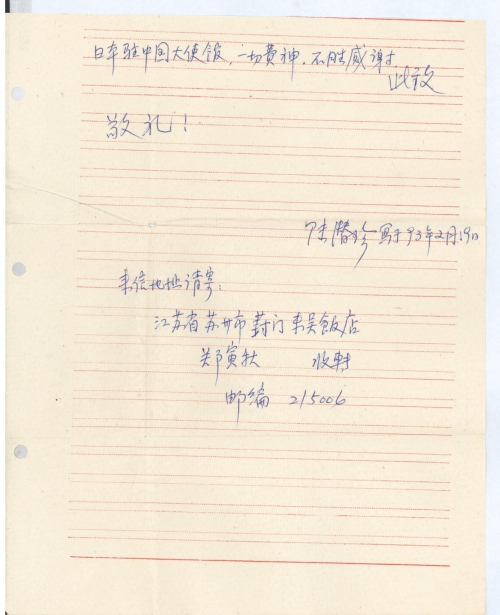 日本驻中国大使馆,一切费神.不胜感谢
此致
敬礼!
陆潜珍写于93年2月19日
来信地址请寄:
江苏省苏州市葑门东吴饭店
郑寅秋 收转
邮编 215006